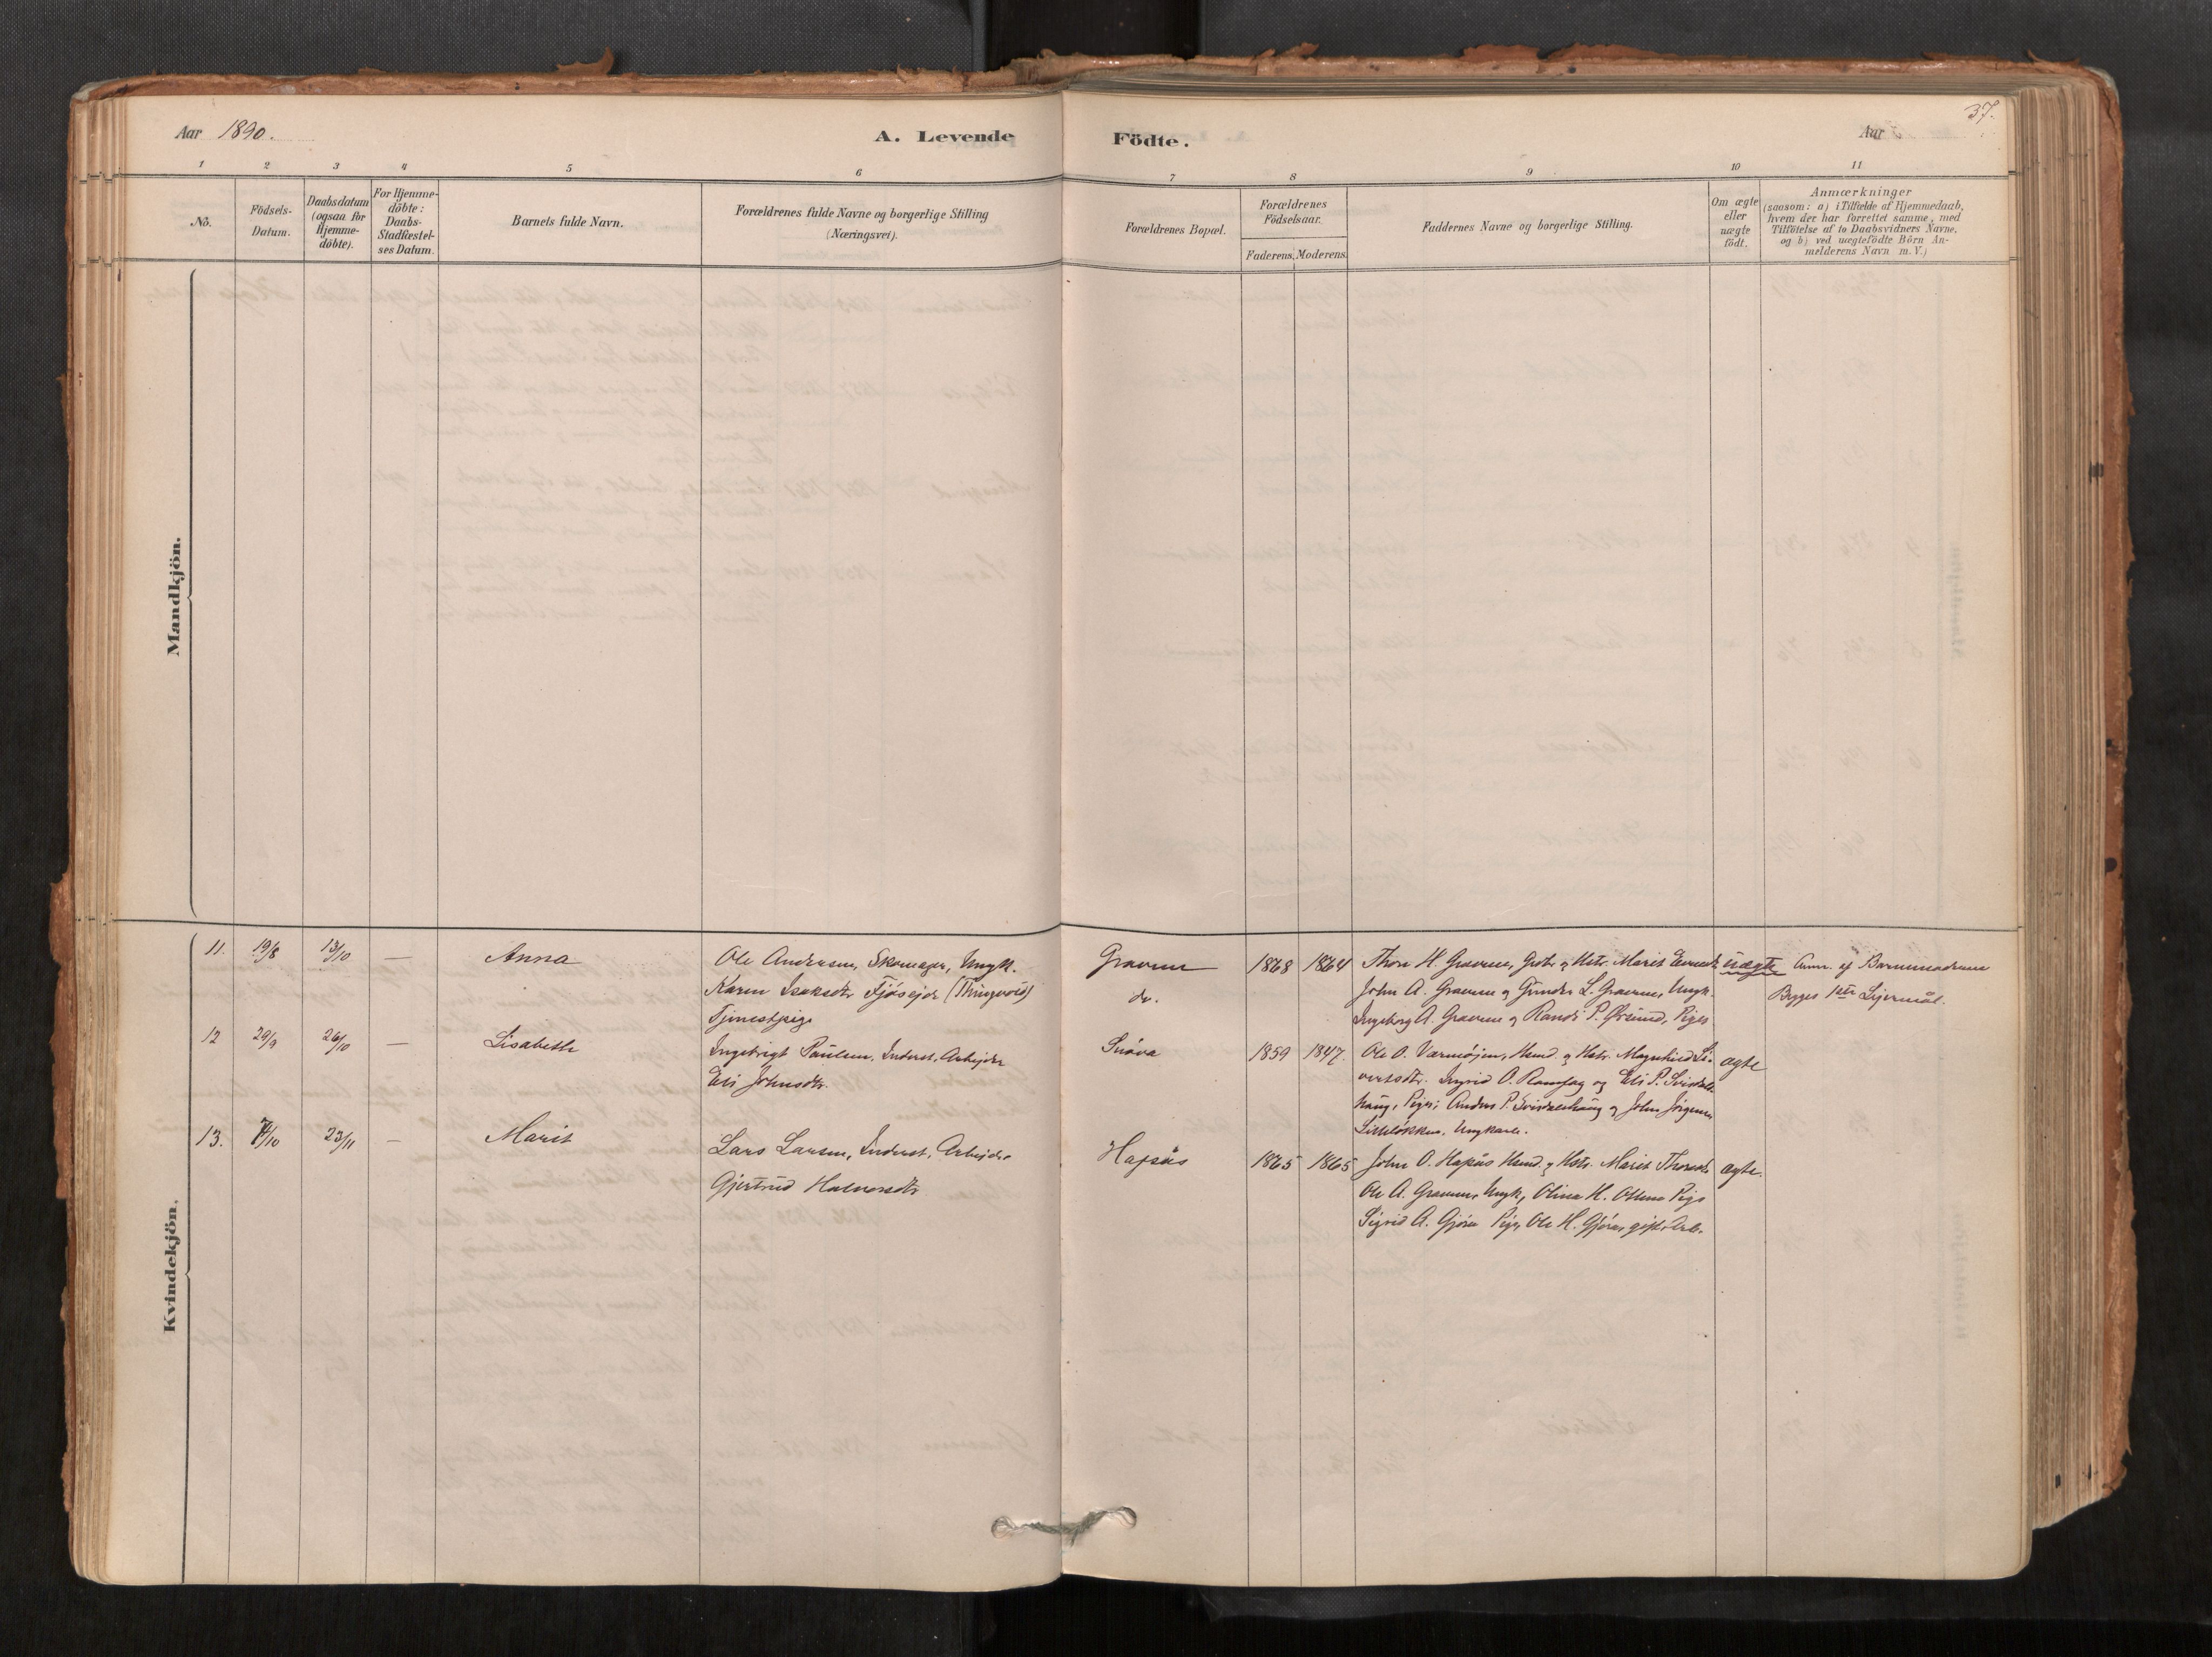 37.
Aar 1890.
A. Levende Födte.
Aar
1 2 3 4 5 6 7 8 9 10 11
No.
Födsels-
Datum.
Daabsdatum
(ogsaa for
Hjemme-
döbte).
For Hjemme-
döbte:
Daabs-
Stadfæstel-
ses Datum.
Barnets fulde Navn.
Forældrenes fulde Navne og borgerlige Stilling
(Næringsvei).
Forældrenes Bopæl.
Forældrenes
Födselsaar.
Faderens. Moderens.
Faddernes Navne og borgerlige Stilling.
Om ægte
eller
uægte
födt.
Anmærkninger
(saasom: a) i Tilfælde af Hjemmedaab,
hvem der har forrettet samme, med
Tilföielse af to Daabsvidners Navne,
og b) ved uægtefödte Börn An-
melderens Navn m.V.)
Mandkjön.
Kvindekjön.
11. 19/8 13/10 — Anna
Ole Andersen, Skomager, Ungk.
Karen Isaksdtr Fjösejde (Thingvold)
Tjenestpige
Graven
do.
1868 1864
Thore H. Graven, Grdbr. og Hstr. Marit Evensdtr
John A. Graven og Gunder L. Graven, Ungk.
Ingeborg A. Graven og Randi P. Öresund, Piger
uægte
Anm. af Barnemoderen
Begges 1ste Leiermål.
12 29/9 26/10 — Lisabeth
Ingebrigt Paulsen, Inderst, Arbejder
Eli Johnsdtr.
Snöva
1859 1847.
Ole O. Værmöjen, Husmd. og Hstr. Magnhild Si-
vertsdtr. Ingrid O. Ramsjag og Eli P. Svinsk
haug, Piger; Anders P. Svinskehaug og John Jörgensen
Litleløkken, Ungkarle.
ægte
13. 7/10 23/11 — Marit
Lars Larsen, Inderst, Arbejder
Gjertrud Halvorsdtr
Hapsås
1865 1865
John O. Hapsås Husmd. og Hstr. Marit Thoresdtr
Ole A. Graven, Ungk, Olina H. Pige
Sigrid A. Gjöra Pige, Ole H. Gjöra, gift, Arb.
ægte.